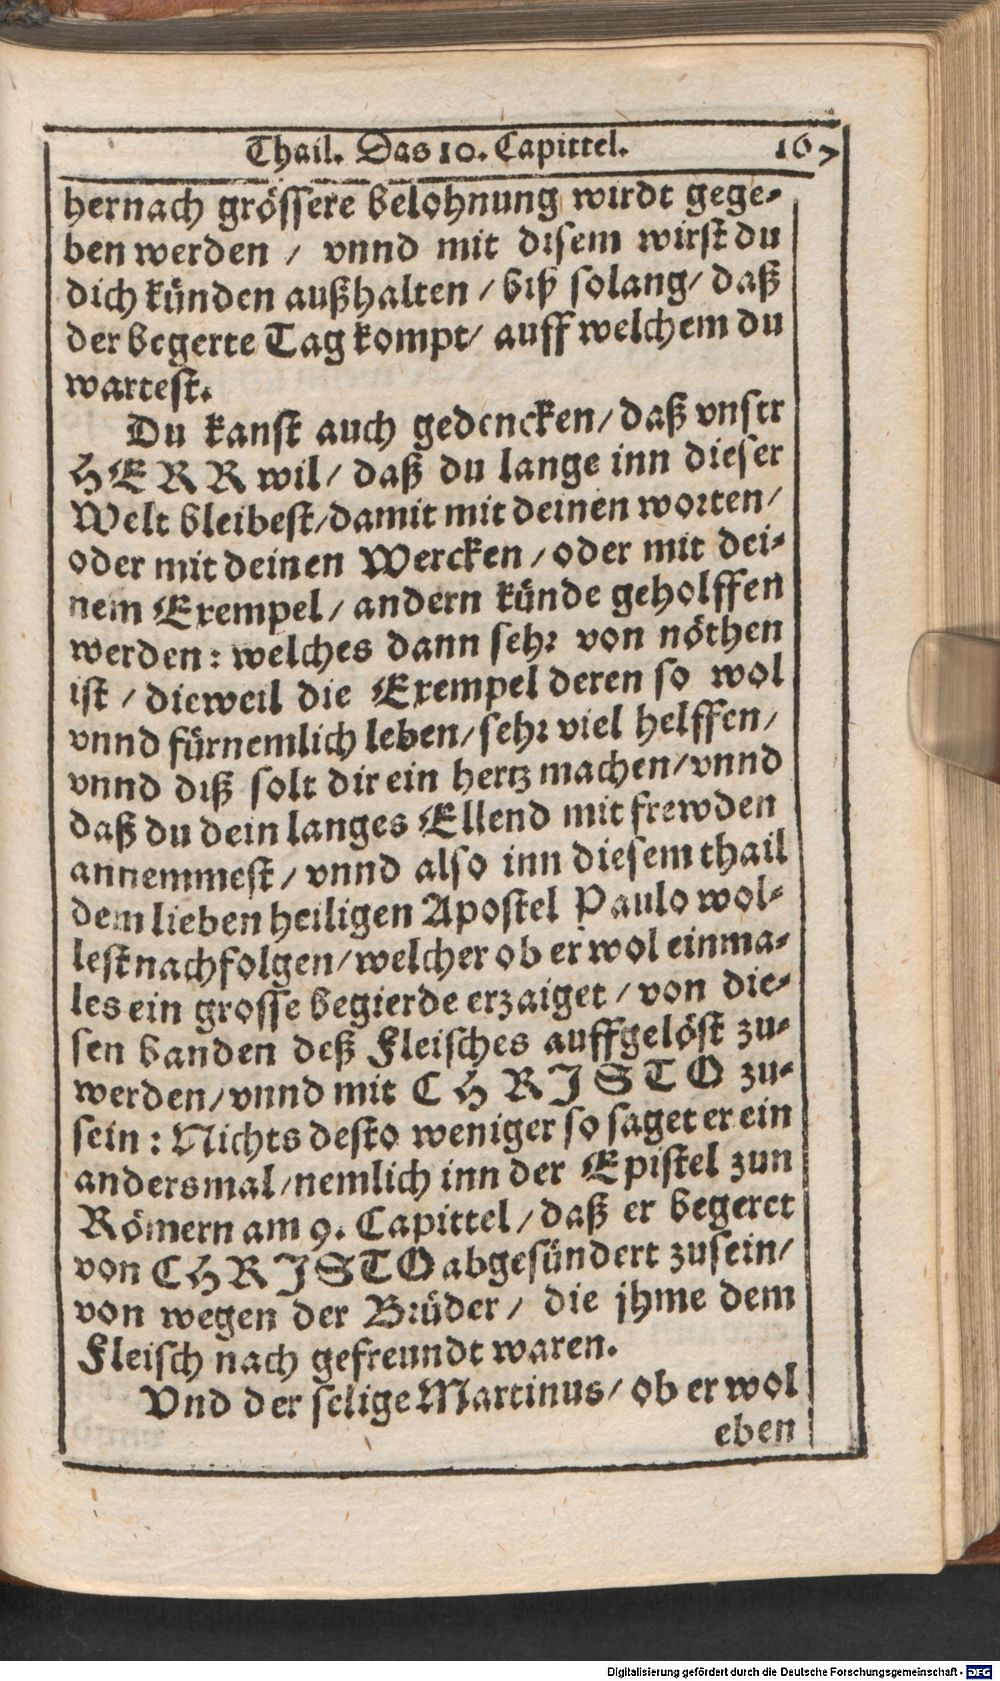 Thail. Das 10. Capittel. 167
hernach grössere belohnung wirdt gege-
ben werden / vnnd mit disem wirst du
dich künden außhalten / biß solang / daß
der begerte Tag kompt / auff welchem du
wartest.
Du kanst auch gedencken / daß vnser
HERR wil / daß du lange inn dieser
Welt bleibest / damit mit deinen worten /
oder mit deinen Wercken / oder mit dei-
nem Exempel / andern künde geholffen
werden : welches dann sehr von nöthen
ist / dieweil die Exempel deren so wol
vnnd fürnemlich leben / sehr viel helffen /
vnnd diß solt dir ein hertz machen / vnnd
daß du dein langes Ellend mit frewden
annemmest / vnnd also inn diesem thail
dem lieben heiligen Apostel Paulo wol-
lest nachfolgen / welcher ob er wol einma-
les ein grosse begierde erzaiget / von die-
sen banden deß Fleisches auffgelöst zu-
werden / vnnd mit CHRISTO zu-
sein : Nichts desto weniger so saget er ein
andersmal / nemlich inn der Epistel zun
Römern am 9. Capittel / daß er begeret
von CHRISTO abgesündert zusein /
von wegen der Brüder / die jhme dem
Fleisch nach gefreundt waren.
Vnd der selige Martinus / ob er wol
eben
Digitalisierung gefördert durch die Deutsche Forschungsgemeinschaft - DFG